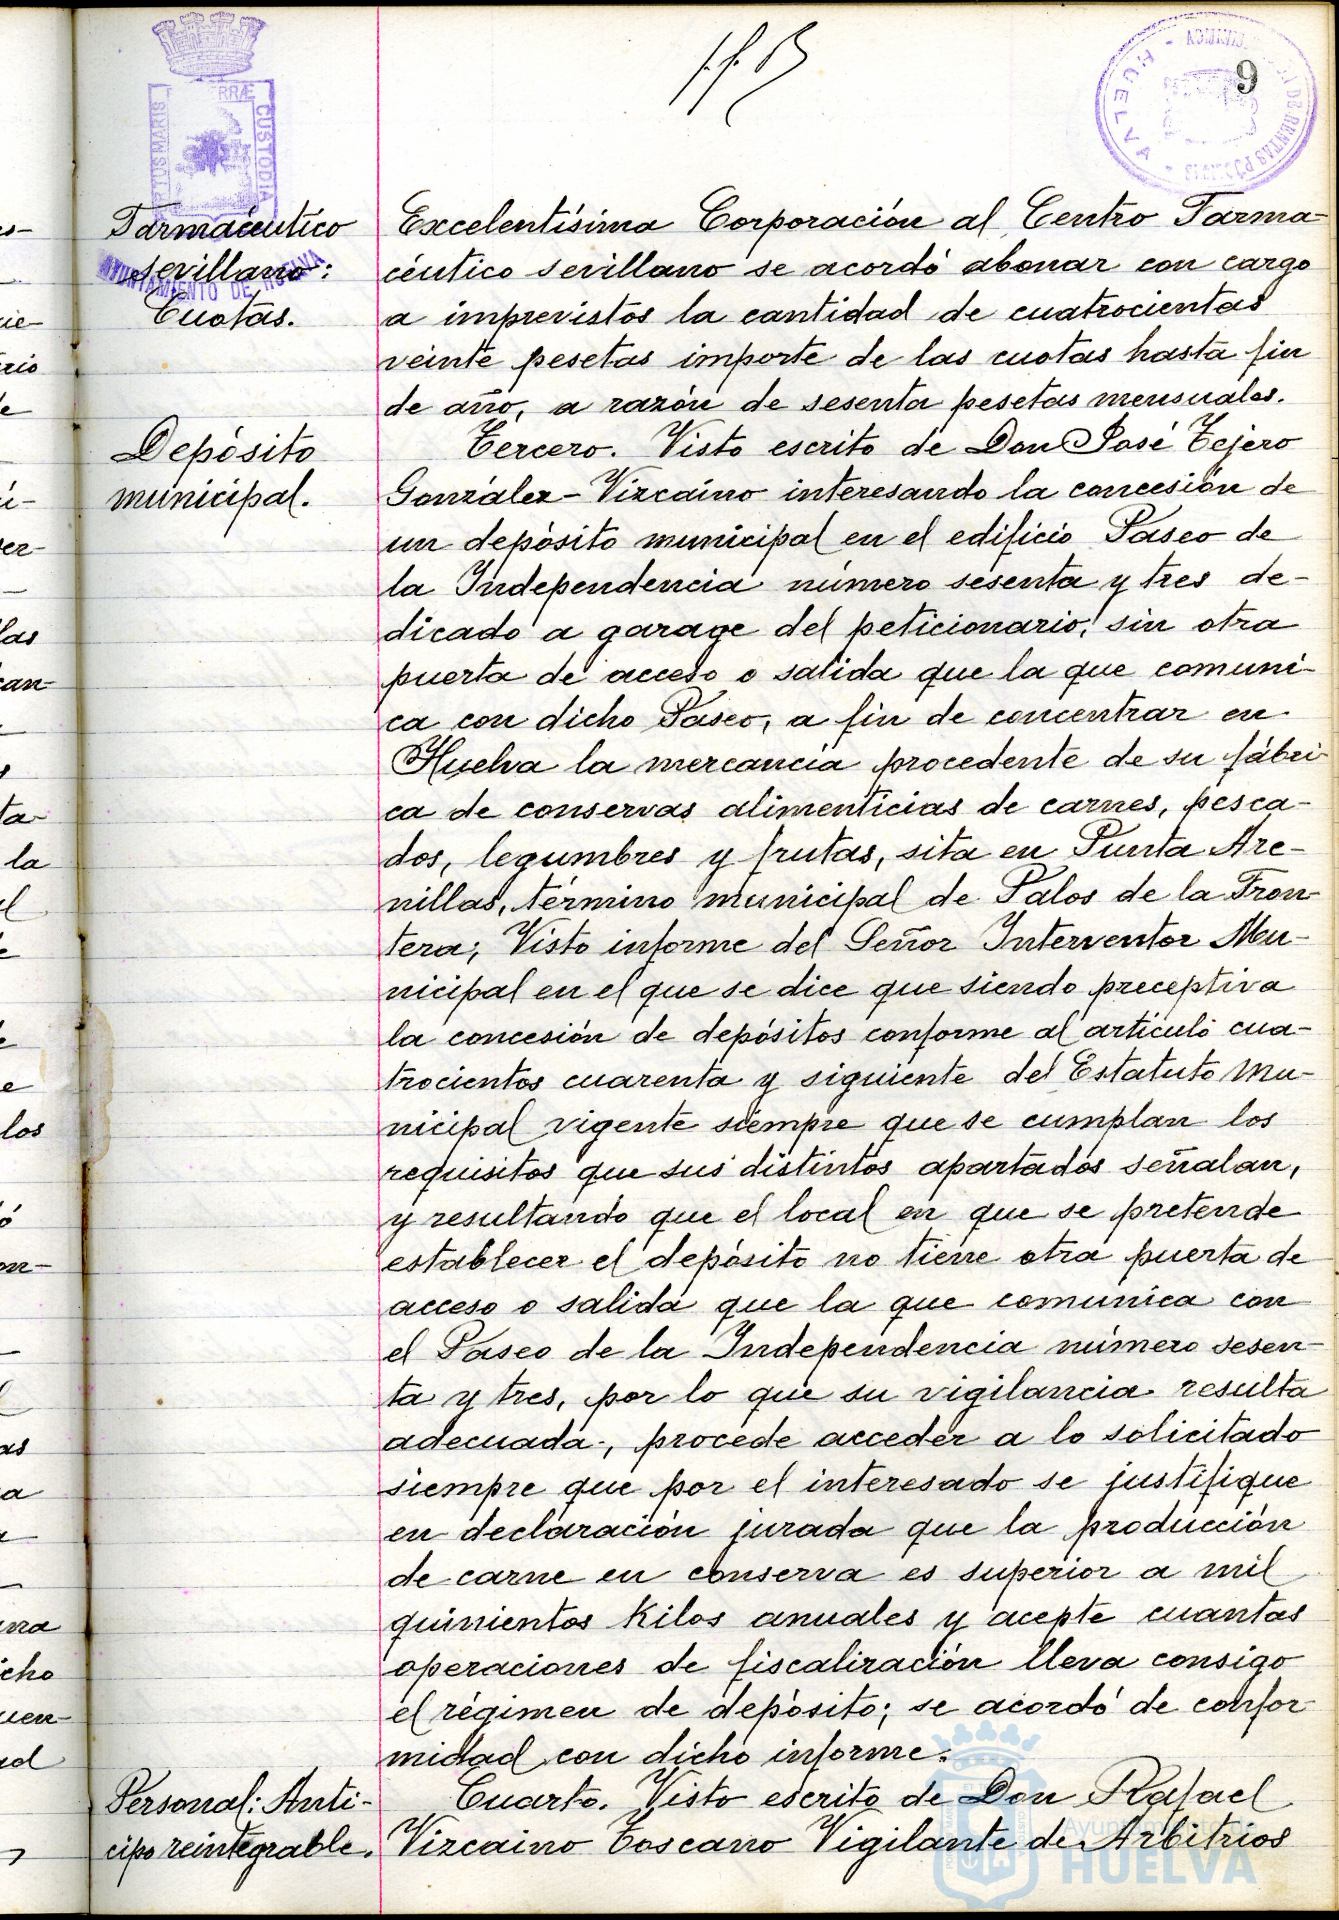 9
PORTUS MARIS
TERRÆ
CUSTODIA
AYUNTAMIENTO DE HUELVA
HUELVA
Farmacéutico
sevillano:
Cuotas.
Excelentísima Corporación al Centro Farma-
céutico sevillano se acordó abonar con cargo
a imprevistos la cantidad de cuatrocientas
veinte pesetas importe de las cuotas hasta fin
de año, a razón de sesenta pesetas mensuales.
Depósito
municipal.
Tercero. Visto escrito de Don José Tejero
González-Vizcaino interesando la concesión de
un depósito municipal en el edificio Paseo de
la Independencia número sesenta y tres de-
dicado a garage del peticionario, sin otra
puerta de acceso o salida que la que comuni-
ca con dicho Paseo, a fin de concentrar en
Huelva la mercancía procedente de su fábri-
ca de conservas alimenticias de carnes, pesca-
dos, legumbres y frutas, sita en Punta Are-
nillas, término municipal de Palos de la Fron-
tera; Visto informe del Señor Interventor Mu-
nicipal en el que se dice que siendo preceptiva
la concesión de depósitos conforme al artículo cua-
trocientos cuarenta y siguiente del Estatuto Mu-
nicipal vigente siempre que se cumplan los
requisitos que sus distintos apartados señalan,
y resultando que el local en que se pretende
establecer el depósito no tiene otra puerta de
acceso o salida que la que comunica con
el Paseo de la Independencia número sesen-
ta y tres, por lo que su vigilancia resulta
adecuada, procede acceder a lo solicitado
siempre que por el interesado se justifique
en declaración jurada que la producción
de carne en conserva es superior a mil
quinientos kilos anuales y acepte cuantas
operaciones de fiscalización lleva consigo
el régimen de depósito; se acordó de confor-
midad con dicho informe.
Personal: Anti-
cipo reintegrable.
Cuarto. Visto escrito de Don Rafael
Vizcaino Toscano Vigilante de Arbitrios
Ayuntamiento de
HUELVA